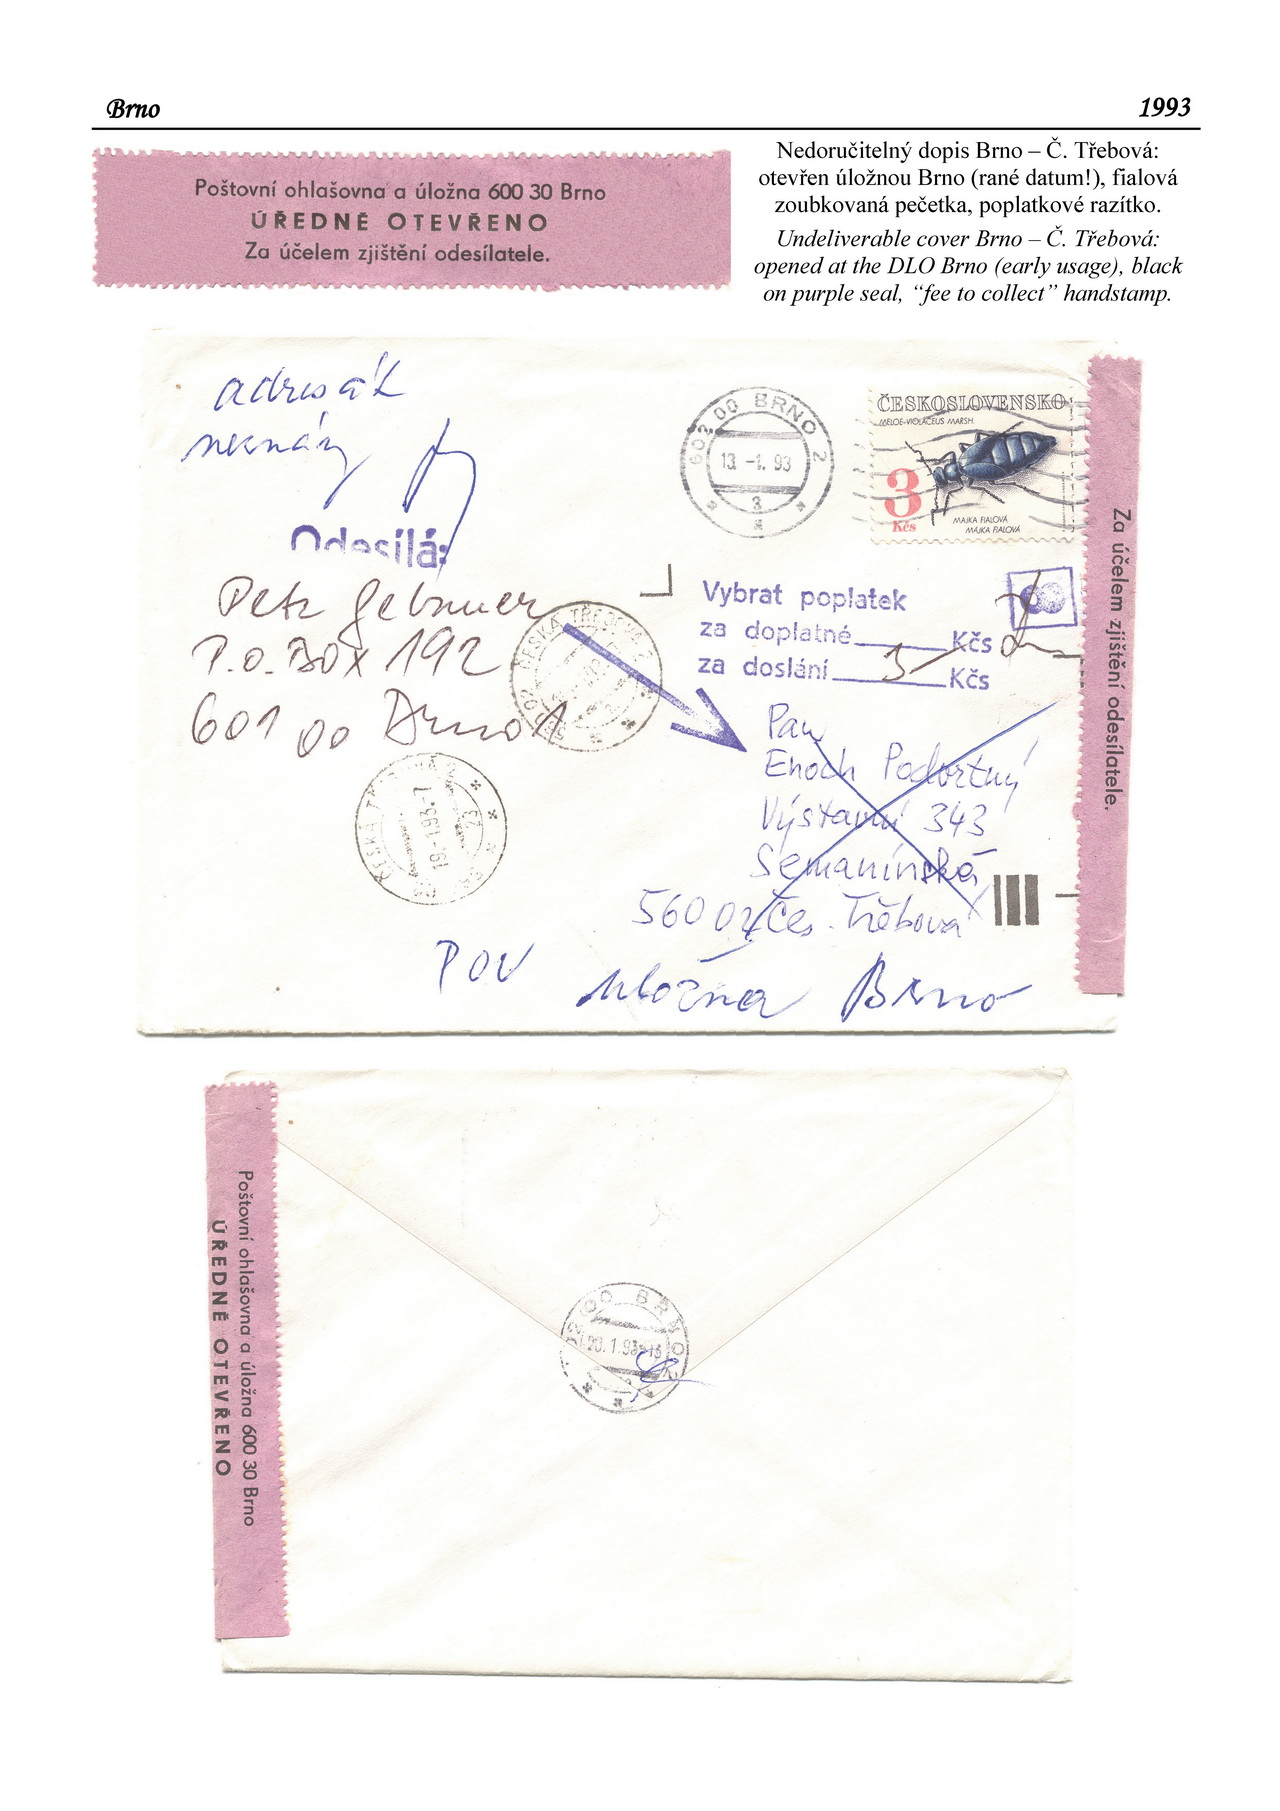 Brno 1993
Poštovní ohlašovna a úložna 600 30 Brno
ÚŘEDNĚ OTEVŘENO
Za účelem zjištění odesílatele.
Nedoručitelný dopis Brno – Č. Třebová:
otevřen úložnou Brno (rané datum!), fialová
zoubkovaná pečetka, poplatkové razítko.
Undeliverable cover Brno – Č. Třebová:
opened at the DLO Brno (early usage), black
on purple seal, “fee to collect” handstamp.
adresát
neznám
Odesílá:
Petr Gebauer
P.O. BOX 192
601 00 Brno 1
602 00 BRNO 2
13. -1. 93
3
ČESKOSLOVENSKO
MELOE VIOLACEUS MARSH.
3
Kčs
MAJKA FIALOVÁ
MÁJKA FIALOVÁ
Vybrat poplatek
za doplatné Kčs
za doslání 3 Kčs
ČESKÁ TŘEBOVÁ 2
560 02
Pan
Enoch Podvrtný
Výstavní 343
Semanínská
560 02 Čes. Třebová
19.-1.93-7
POV úložna Brno
Za účelem zjištění odesílatele.
Poštovní ohlašovna a úložna 600 30 Brno
ÚŘEDNĚ OTEVŘENO
602 00 BRNO 2
20.1.93-16